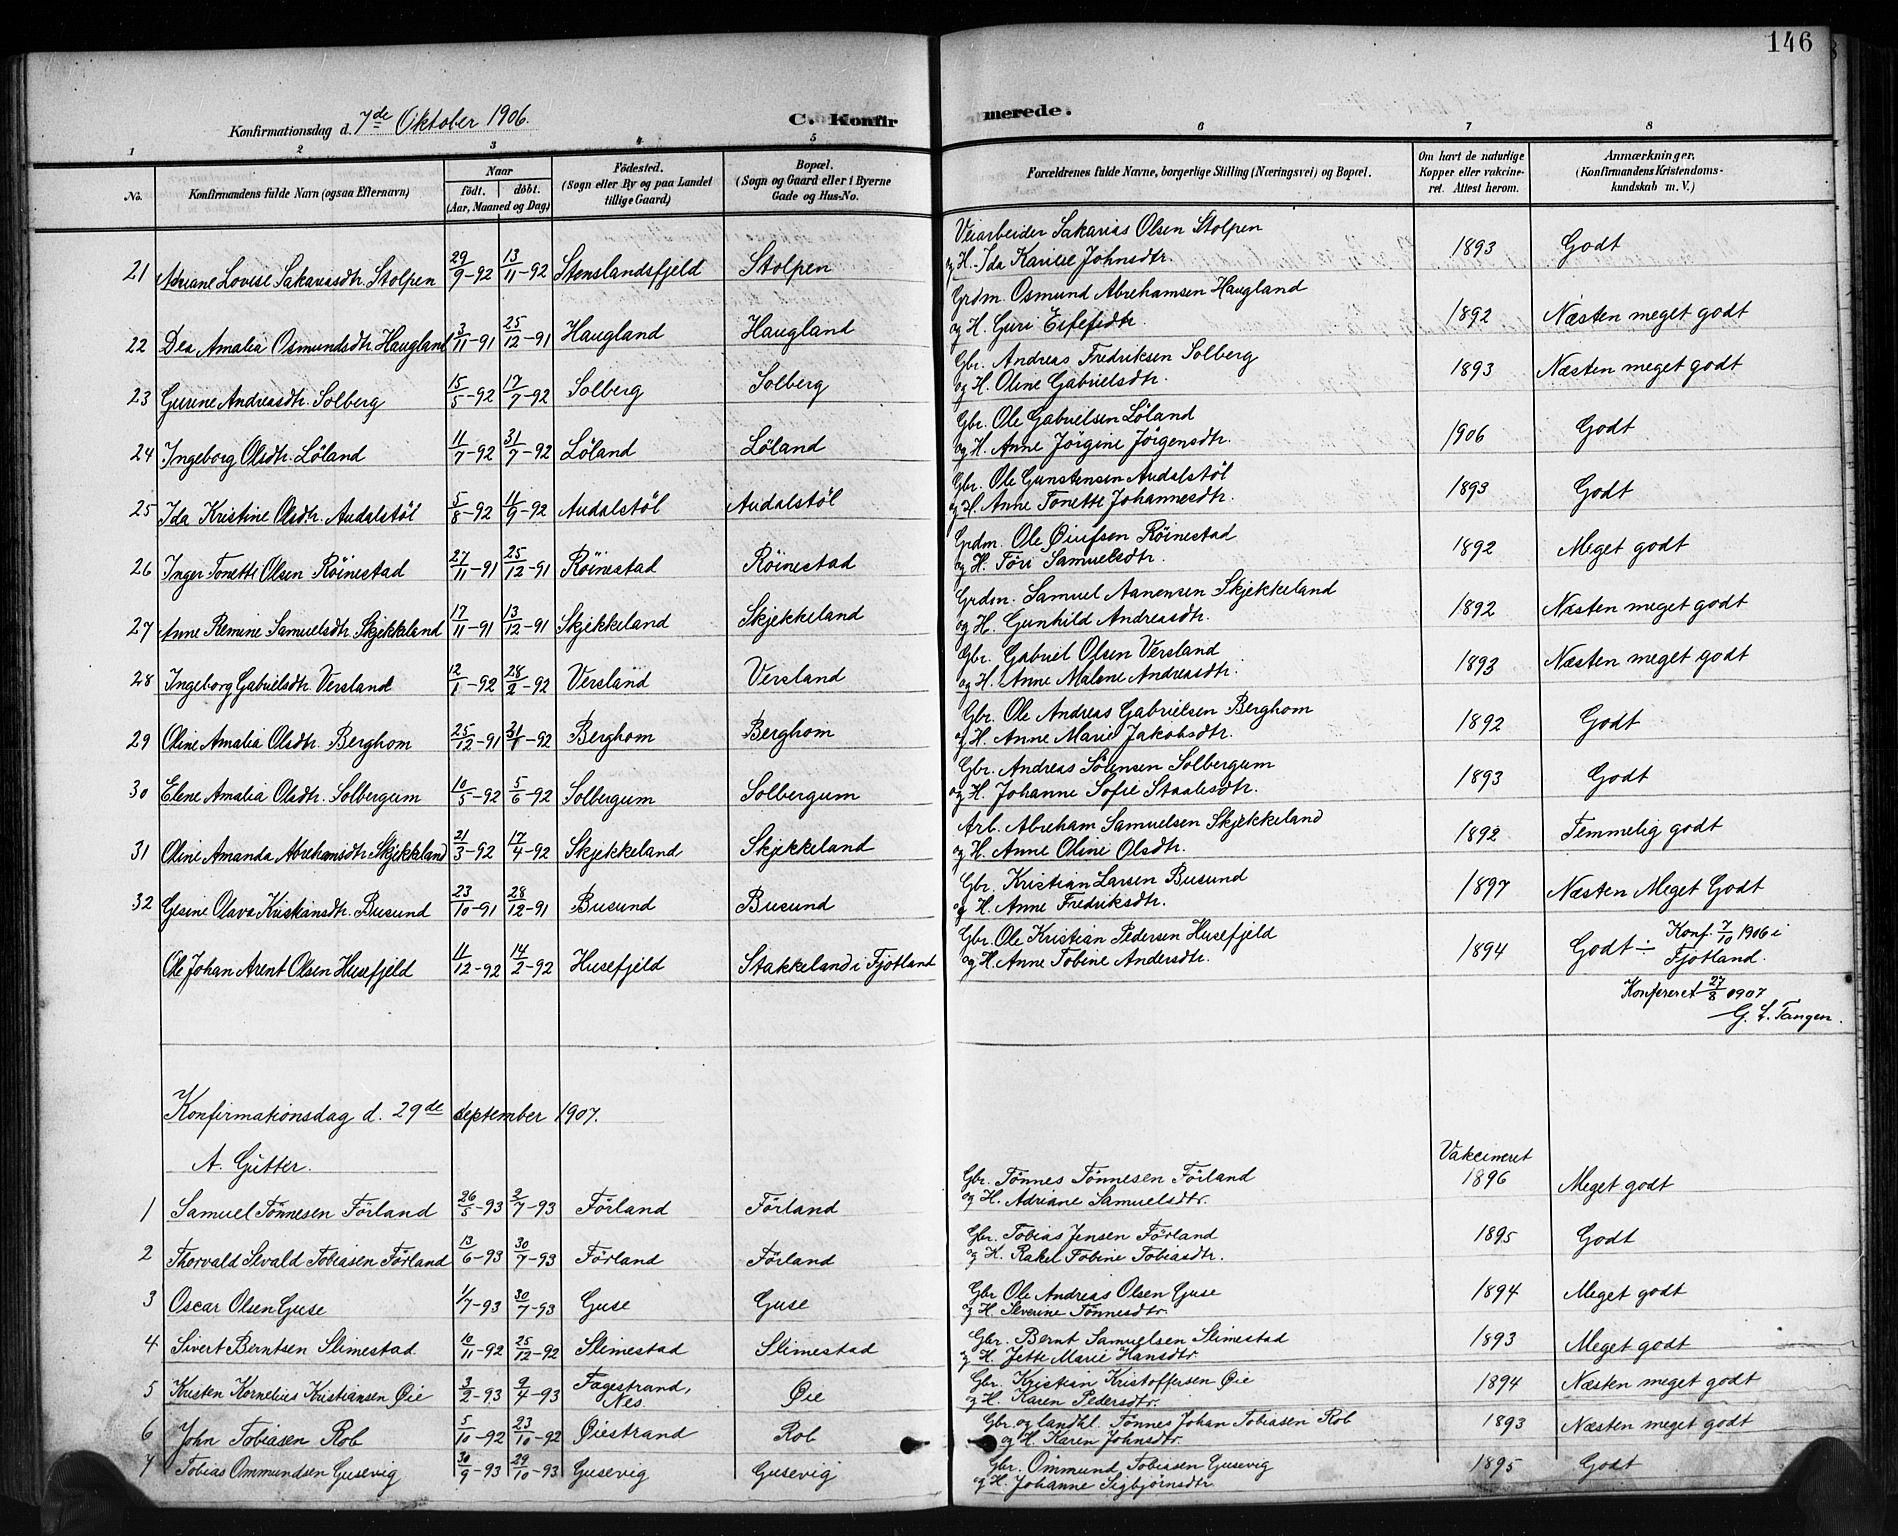 146
Konfirmationsdag d. 7de Oktober 1906.
C. Konfirmerede.
1 2 3 4 5 6 7 8
No.
Konfirmandens fulde Navn (ogsaa Efternavn)
Naar
født. døbt.
(Aar, Maaned og Dag)
Fødested.
(Sogn eller By og paa Landet
tillige Gaard)
Bopæl.
(Sogn og Gaard eller i Byerne
Gade og Hus-No.
Forældrenes fulde Navne, borgerlige Stilling (Næringsvei) og Bopæl.
Om havt de naturlige
Kopper eller vakcine-
ret. Attest herom.
Anmærkninger.
(Konfirmandens Kristendoms-
kundskab m. V.)
Veiarbeider Sakarias Olsen Stolpen
21 Adriane Lovise Sakariasdtr. Stolpen 29/9-92 13/11-92 Stenslandsfjeld Stolpen og H. Ida Karine Johnsdtr. 1893 Godt
Grdm. Osmund Abrehamsen Haugland
22 Dea Amalia Osmundsdtr Haugland 3/11-91 25/12-91 Haugland Haugland og H. Guri 1892 Næsten meget godt
Gbr. Andreas Fredriksen Solberg
23 Gurine Andreasdtr. Solberg 15/5-92 17/7-92 Solberg Solberg og H. Oline Gabrielsdtr. 1893 Næsten meget godt
Gbr. Ole Gabrielsen Löland
24 Ingeborg Olsdtr. Löland 11/7-92 31/7-92 Löland Löland og H. Anne Jörgine Jörgensdtr. 1906 Godt
Gbr. Ole Gunstensen Audalstöl
25 Ida Kristine Olsdtr. Audalstöl 5/8-92 11/9-92 Audalstöl Audalstöl og H. Anne Tonette Johannesdtr. 1893 Godt
Grdm. Ole Øiufsen Röinestad
26 Inger Tonette Olsen Röinestad 27/11-91 25/12-91 Röinestad Röinestad og H. Töri Samuelsdtr. 1892 Meget godt
Grdm. Samuel Aanensen Skjekkeland
27 Anne Remine Samuelsdtr. Skjekkeland 17/11-91 13/12-91 Skjekkeland Skjekkeland og H. Gunhild Andreasdtr. 1892 Næsten meget godt
Gbr. Gabriel Olsen Versland
28 Ingeborg Gabrielsdtr Versland 12/1-92 28/2-92 Versland Versland og H. Anne Malene Andreasdtr. 1893 Næsten meget godt
Gbr. Ole Andreas Gabrielsen Berghom
29 Oline Amalia Olsdtr. Berghom 25/12-91 31/1-92 Berghom Berghom og H. Anne Marie Jakobsdtr. 1892 Godt
Gbr. Andreas Sörensen Solbergum
30 Elene Amalia Olsdtr. Solbergum 10/5-92 5/6-92 Solbergum Solbergum og H. Johanne Sofie Staalesdtr. 1893 Godt
Arb. Abreham Samuelsen Skjekkeland
31 Oline Amanda Abrehamsdtr Skjekkeland 21/3-92 17/4-92 Skjekkeland Skjekkeland og H. Anne Oline Olsdtr. 1892 Temmelig godt
Gbr. Kristian Larsen Busund
32 Gesine Olava Kristiansdtr. Busund 23/10-91 28/12-91 Busund Busund og H. Anne Fredriksdtr. 1897 Næsten Meget Godt
Gbr. Ole Kristian Pedersen Husefjeld
Ole Johan Arent Olsen Husefjeld 11/12-92 14/2-92 Husefjeld Stakkeland i Fjotland og H. Anne Tobine Andersdtr. 1894 Godt ÷ Konf. 7/10 1906 i
Fjotland.
Konfereret 27/8 1907
G. L. Tangen.
Konfirmationsdag d. 29de september 1907.
A. Gutter.
Vakcineret
Gbr. Tönnes Tönnesen Förland
1 Samuel Tönnesen Förland 26/5-93 2/7-93 Förland Förland og H. Adriane Samuelsdtr. 1896 Meget godt
Gbr. Tobias Jensen Förland
2 Thorvald Sevald Tobiasen Förland 13/6-93 30/7-93 Förland Förland og H. Rakel Tobine Tobiasdtr. 1895 Godt
Gbr Ole Andreas Olsen Guse
3 Oscar Olsen Guse 1/7-93 30/7-93 Guse Guse og H. Severine Tönnesdtr. 1894 Meget godt
Gbr. Bernt Samuelsen Slimestad
4 Sivert Berntsen Slimestad 10/11-92 25/12-92 Slimestad Slimestad og H. Jette Marie Hansdtr. 1893 Meget godt
Gbr. Kristian Kristoffersen Øie
5 Kristen Kornelius Kristiansen Øie 3/2-93 9/4-93 Fagestrand, Nes. Øie og H. Karen Pedersdtr. 1894 Næsten meget godt
Gbr. og landhl. Tönnes Johan Tobiasen Rob
6 John Tobiasen Rob 5/10-92 23/10-92 Øiestrand Rob og H. Karen Johnsdtr. 1893 Næsten meget godt
Gbr. Ommund Tobiasen Gusevig
7 Tobias Ommundsen Gusevig 30/9-93 29/10-93 Gusevig Gusevig og H. Johanne Sigbjörnsdtr 1895 Godt